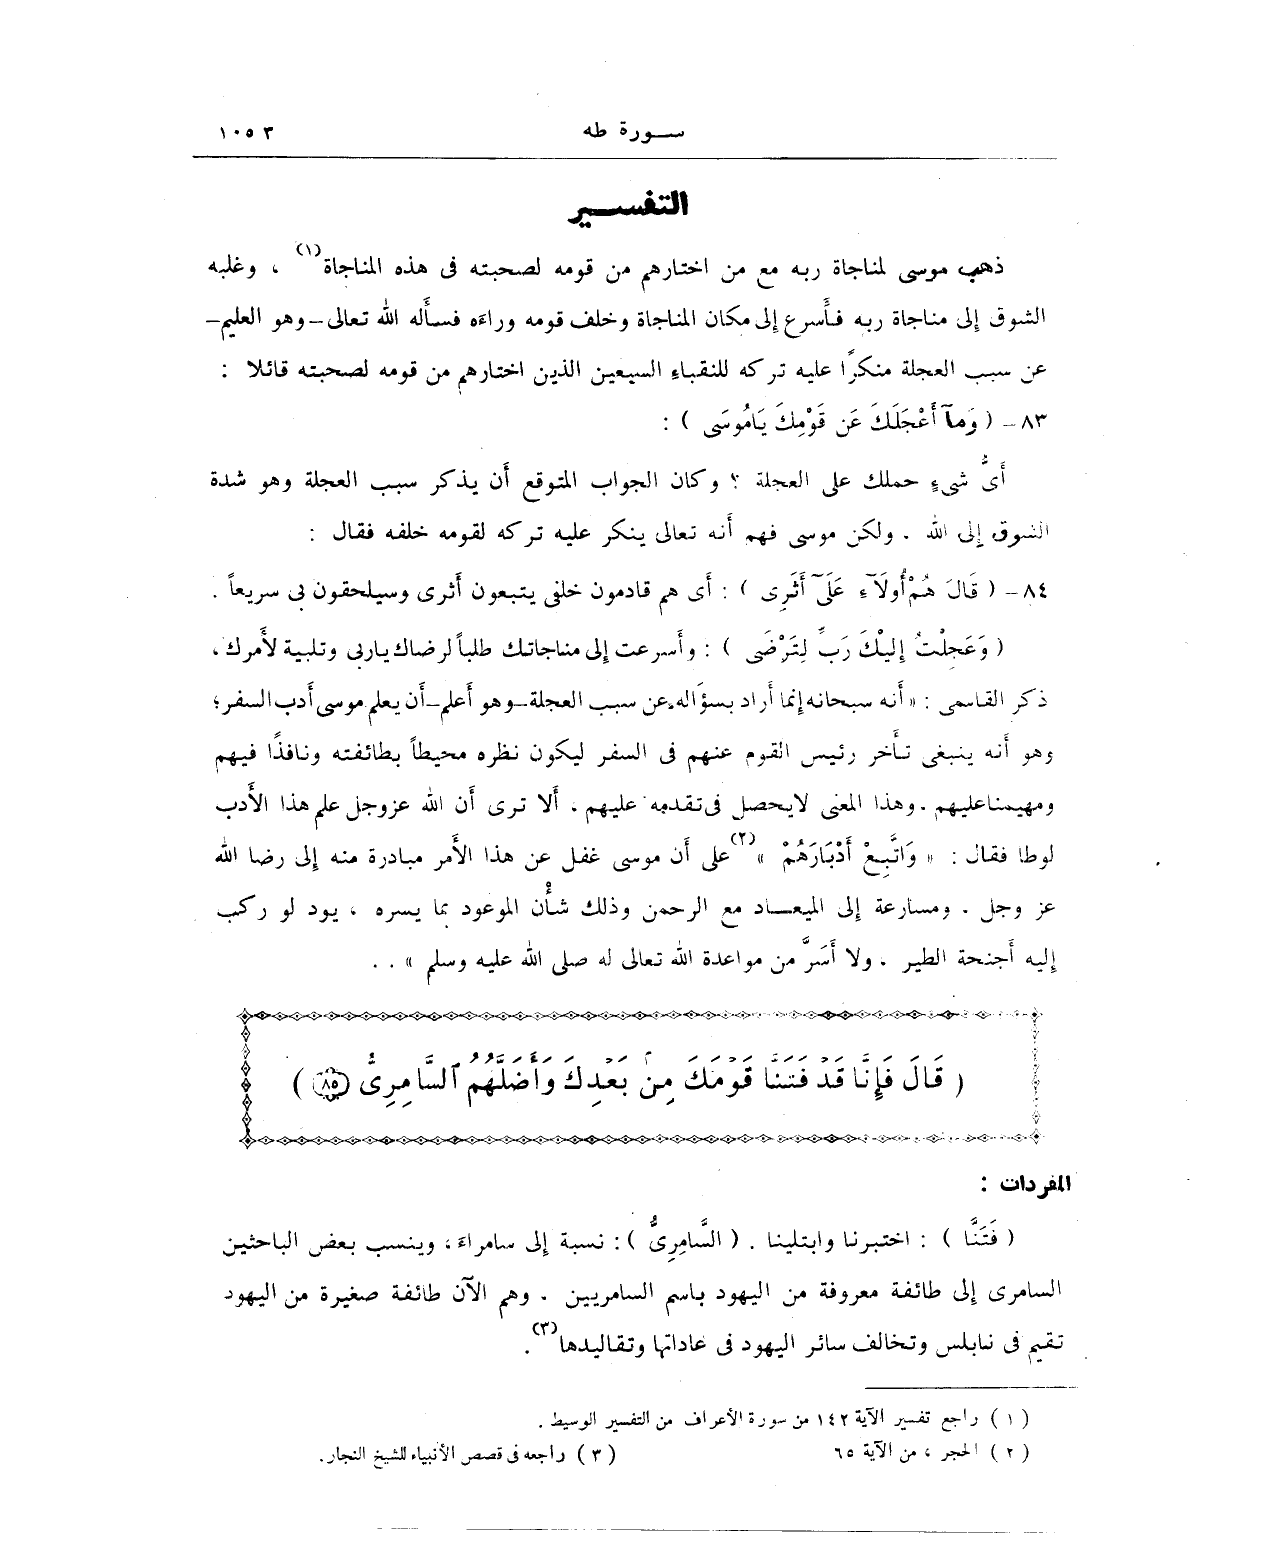 سورة طه ١٠٥٣
التفسير
ذهب موسى لمناجاة ربه مع من اختارهم من قومه لصحبته فى هذه المناجاة(١) ، وغلبه
الشوق إلى مناجاة ربه فأسرع إلى مكان المناجاة وخلف قومه وراءه فسأله الله تعالى–وهو العليم–
عن سبب العجلة منكرًا عليه تركه للنقباء السبعين الذين اختارهم من قومه لصحبته قائلا :
٨٣– ( وَمَآ أَعْجَلَكَ عَن قَوْمِكَ يَامُوسَى ) :
أَىُّ شىءٍ حملك على العجلة ؟ وكان الجواب المتوقع أن يذكر سبب العجلة وهو شدة
الشوق إلى الله . ولكن موسى فهم أنه تعالى ينكر عليه تركه لقومه خلفه فقال :
٨٤– ( قَالَ هُمْ أُولَآءِ عَلَىٓ أَثَرِى ) : أى هم قادمون خلفى يتبعون أثرى وسيلحقون بى سريعاً .
( وَعَجِلْتُ إِلَيْكَ رَبِّ لِتَرْضَى ) : وأسرعت إلى مناجاتك طلباً لرضاك ياربى وتلبية لأمرك،
ذكر القاسمى : « أنه سبحانه إنما أراد بسؤاله عن سبب العجلة–وهو أعلم–أن يعلم موسى أدب السفر؛
وهو أنه ينبغى تأخر رئيس القوم عنهم فى السفر ليكون نظره محيطاً بطائفته ونافذًا فيهم
ومهيمنا عليهم . وهذا المعنى لا يحصل فى تقدمه عليهم ، ألا ترى أن الله عز وجل علم هذا الأدب
لوطا فقال : « وَاتَّبِعْ أَدْبَارَهُمْ »(٢) على أن موسى غفل عن هذا الأمر مبادرة منه إلى رضا الله
عز وجل . ومسارعة إلى الميعاد مع الرحمن وذلك شأْن الموعود بما يسره ، يود لو ركب
إليه أجنحة الطير . ولا أَسَرَّ من مواعدة الله تعالى له صلى الله عليه وسلم » . .
( قَالَ فَإِنَّا قَدْ فَتَنَّا قَوْمَكَ مِنۢ بَعْدِكَ وَأَضَلَّهُمُ ٱلسَّامِرِىُّ ٨٥ )
المفردات :
( فَتَنَّا ) : اختبرنا وابتلينا . ( السَّامِرِىُّ ) : نسبة إلى سامراء، وينسب بعض الباحثين
السامرى إلى طائفة معروفة من اليهود باسم السامريين . وهم الآن طائفة صغيرة من اليهود
تقيم فى نابلس وتخالف سائر اليهود فى عاداتها وتقاليدها(٣) .
( ١ ) راجع تفسير الآية ١٤٢ من سورة الأعراف من التفسير الوسيط .
( ٢ ) الحجر ، من الآية ٦٥ ( ٣ ) راجعه فى قصص الأنبياء للشيخ النجار .